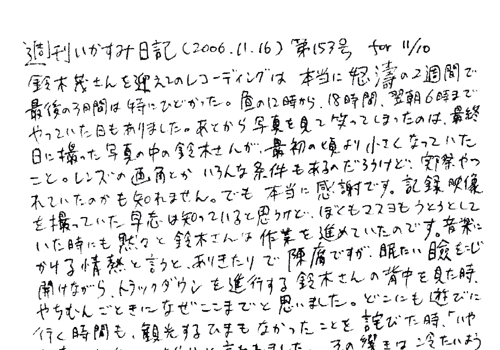 週刊いかすみ日記(2006.11.16) 第153号 for 11/10
鈴木茂さんを迎えてのレコーディングは 本当に 怒濤の2週間で
最後の3日間は 特にひどかった。昼の12時から、18時間、翌朝6時まで
やっていた日もありました。あとから写真を見て笑ってしまったのは、最終
日に撮った写真の中の鈴木さんが、最初の頃より小さくなっていた
こと。レンズの画角とか いろんな条件もあるのだろうけど、実際やつ
れていたのかも知れません。でも 本当に感謝です。記録映像
を撮っていた 早志は知っていると思うけど、ぼくもマスヨもうとうとして
いた時にも 黙々と 鈴木さんは 作業を進めていたのです。音楽に
かける情熱と言うと、ありきたりで 陳腐ですが、眠たい瞼をこじ
開けながら、トラックダウンを進行する鈴木さんの背中を見た時、
やちむんごときになぜここまでと思いました。どこにも遊びに
行く時間も、観光するひまもなかったことを 詫びた時、「いや